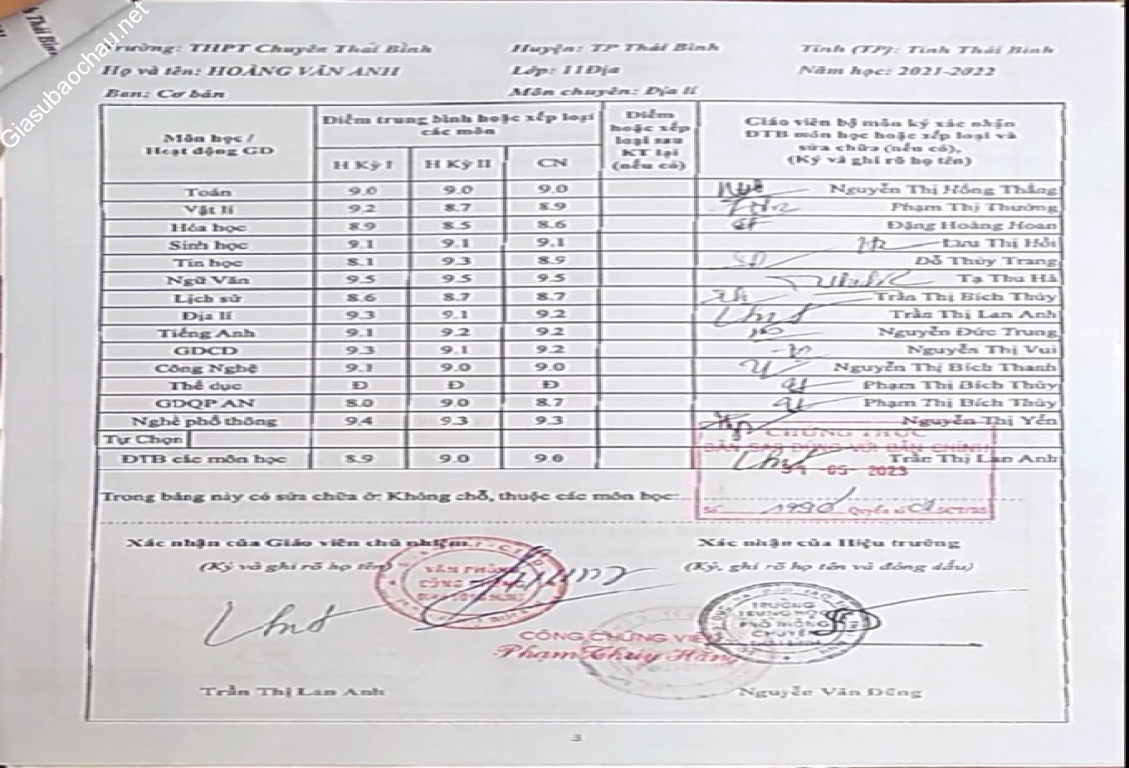 Giasubaochau.net
Thái Bình
Trường: THPT Chuyên Thái Bình Huyện: TP Thái Bình Tỉnh (TP): Tỉnh Thái Bình
Họ và tên: HOÀNG VÂN ANH Lớp: 11Địa Năm học: 2021-2022
Ban: Cơ bản Môn chuyên: Địa lí
Môn học / Hoạt động GD Điểm trung bình hoặc xếp loại các môn Điểm hoặc xếp loại sau KT lại (nếu có) Giáo viên bộ môn ký xác nhận ĐTB môn học hoặc xếp loại và sửa chữa (nếu có). (Ký và ghi rõ họ tên)
H Kỳ I H Kỳ II CN
Toán 9.0 9.0 9.0 Nguyễn Thị Hồng Thắng
Vật lí 9.2 8.7 8.9 Phạm Thị Thưởng
Hóa học 8.9 8.5 8.6 Đặng Hoàng Hoan
Sinh học 9.1 9.1 9.1 Lưu Thị Hồi
Tin học 8.1 9.3 8.9 Đỗ Thùy Trang
Ngữ Văn 9.5 9.5 9.5 Tạ Thu Hà
Lịch sử 8.6 8.7 8.7 Trần Thị Bích Thủy
Địa lí 9.3 9.1 9.2 Trần Thị Lan Anh
Tiếng Anh 9.1 9.2 9.2 Nguyễn Đức Trung
GDCD 9.3 9.1 9.2 Nguyễn Thị Vui
Công Nghệ 9.1 9.0 9.0 Nguyễn Thị Bích Thanh
Thể dục Đ Đ Đ Phạm Thị Bích Thủy
GDQP AN 8.0 9.0 8.7 Phạm Thị Bích Thủy
Nghề phổ thông 9.4 9.3 9.3 Nguyễn Thị Yến
Tự Chọn
CHỨNG THỰC
BẢN SAO ĐÚNG VỚI BẢN CHÍNH
ĐTB các môn học 8.9 9.0 9.0 Trần Thị Lan Anh
-05- 2023
Trong bảng này có sửa chữa ở: Không chỗ, thuộc các môn học:
Số Quyển số SCT/BS
Xác nhận của Giáo viên chủ nhiệm Xác nhận của Hiệu trưởng
(Ký và ghi rõ họ tên) (Ký, ghi rõ họ tên và đóng dấu)
VĂN PHÒNG
CÔNG
TRƯỜNG
TRUNG HỌC
PHỔ THÔNG
CHUYÊN
CÔNG CHỨNG VIÊN
Phạm Thúy Hằng
Trần Thị Lan Anh Nguyễn Văn Dũng
3